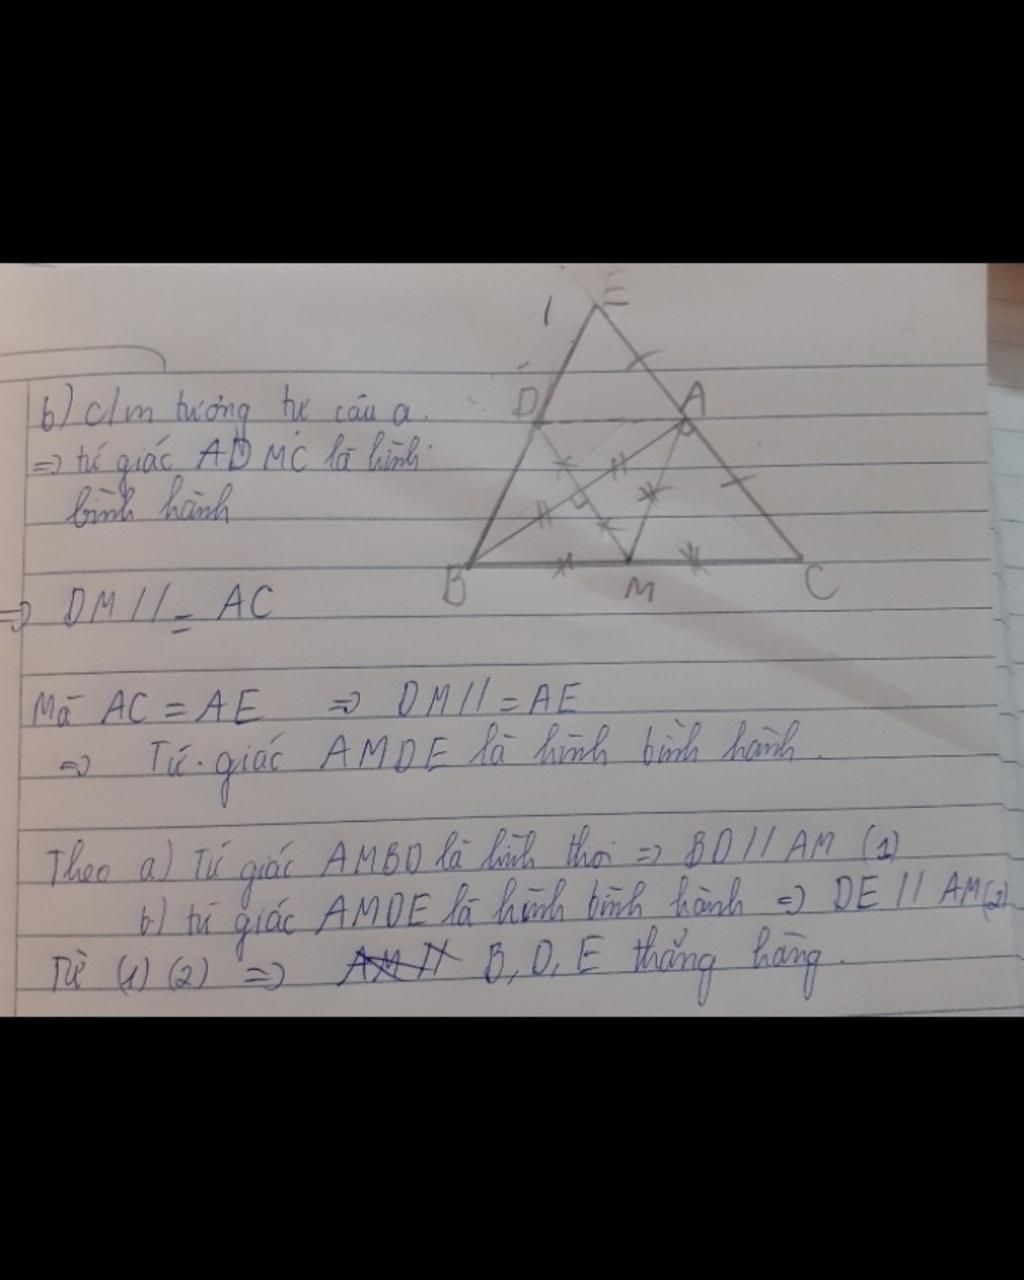 E
D
A
b) c/m tương tự câu a.
=> tứ giác ADMC là hình
bình hành
B
M
C
=> DM // = AC
Mà AC = AE => DM // = AE
=> Tứ giác AMDE là hình bình hành.
Theo a) Tứ giác AMBD là hình thoi => BD // AM (1)
b) tứ giác AMDE là hình bình hành => DE // AM (2)
Từ (1) (2) => B, D, E thẳng hàng.